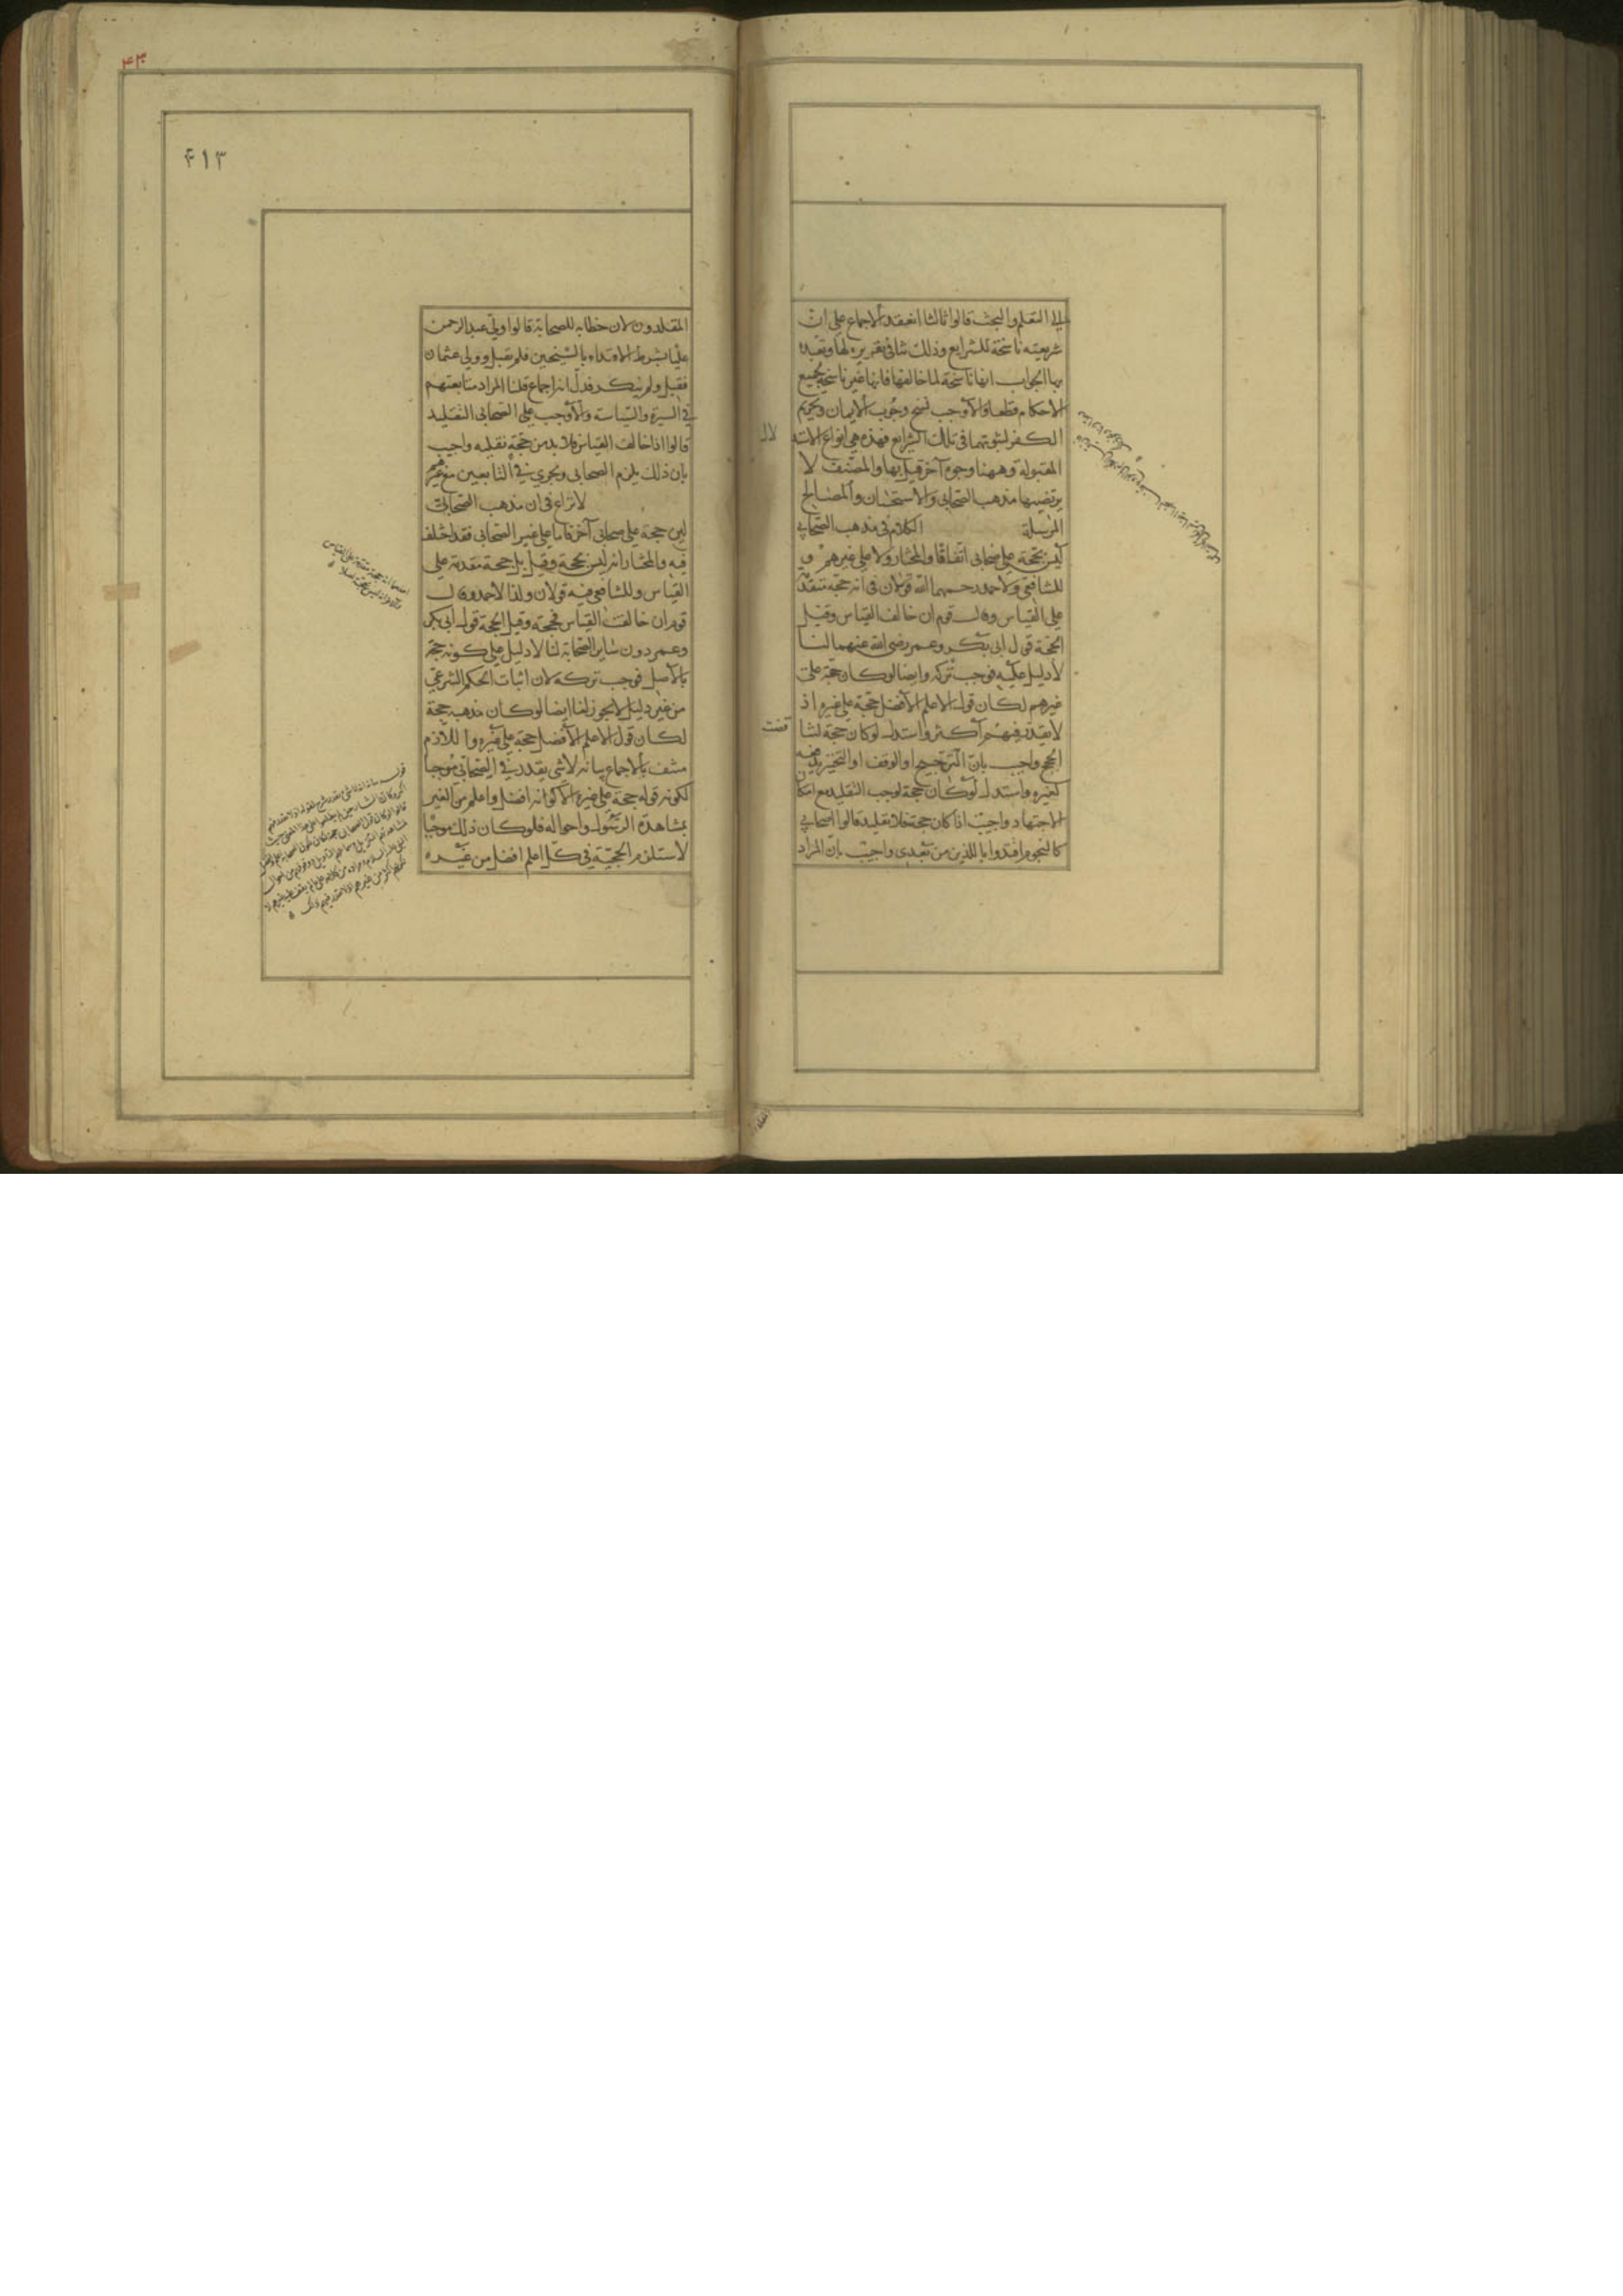 الى التعلم والبحث قالوا ثالثا انعقد الاجماع على ان
شريعته ناسخة للشرايع وذلك ينافي تقريره لها وتعبده
بها الجواب انها ناسخة لما خالفها فانها غير ناسخة لجميع
الاحكام قطعا والا وجب نسخ وجوب الايمان وتحريم
الكفر لثبوتهما في تلك الشرايع فهذه هي انواع الادلة
المقبولة وههنا وجوه آخر قيل بها والمصنف لا
يرتضيها مذهب الصحابي والاستحسان والمصالح
المرسلة الكلام في مذهب الصحابي
ليس بحجة على صحابي اتفاقا والمختار ولا على غيرهم و
للشافعي ولاحمد رحمهما الله قولان في انه حجة متقدمة
على القياس وقال قوم ان خالف القياس وقيل
الحجة قول ابي بكر وعمر رضي الله عنهما لنا
لا دليل عليه فوجب تركه وايضا لو كان حجة على
غيرهم لكان قول الاعلم الافضل حجة على غيره اذ
لا يقدر فيهم اكثر واستدل لو كان حجة لتناقضت
الحجج واجيب بان الترجيح او الوقف او التخيير يدفعه
كغيره واستدل لو كان حجة لوجب التقليد مع امكان
الاجتهاد واجيب اذا كان حجة فلا تقليد قالوا اصحابي
كالنجوم اقتدوا باللذين من بعدي واجيب بان المراد
۶۱۳
المقلدون لان خطابه للصحابة قالوا ولي عبد الرحمن
عليا بشرط الاقتداء بالشيخين فلم يقبل وولى عثمان
فقبل ولم ينكر فدل انه اجماع قلنا المراد متابعتهم
في السيرة والسياسة والا وجب على الصحابي التقليد
قالوا اذا خالف القياس فلا بد من حجة نقلية واجيب
بان ذلك يلزم الصحابي ويجري في التابعين مع غيرهم
لا نزاع في ان مذهب الصحابي
ليس حجة على صحابي آخر فاما على غير الصحابي فقد اختلف
فيه والمختار انه ليس بحجة وقيل بل حجة مقدمة على
القياس وللشافعي فيه قولان ولذا لاحمد وقال
قوم ان خالف القياس فحجة وقيل الحجة قول ابي بكر
وعمر دون ساير الصحابة لنا لا دليل على كونه حجة
بالاصل فوجب تركه لان اثبات الحكم الشرعي
من غير دليل لا يجوز لنا ايضا لو كان مذهبه حجة
لكان قول الاعلم الافضل حجة على غيره واللازم
منتف بالاجماع بيانه لا شي يقدر في الصحابي موجبا
لكونه قوله حجة على غيره الا كونه افضل واعلم من الغير
بمشاهدة الرسول واحواله فلو كان ذلك موجبا
لاستلزم الحجية في كل اعلم افضل من غيره